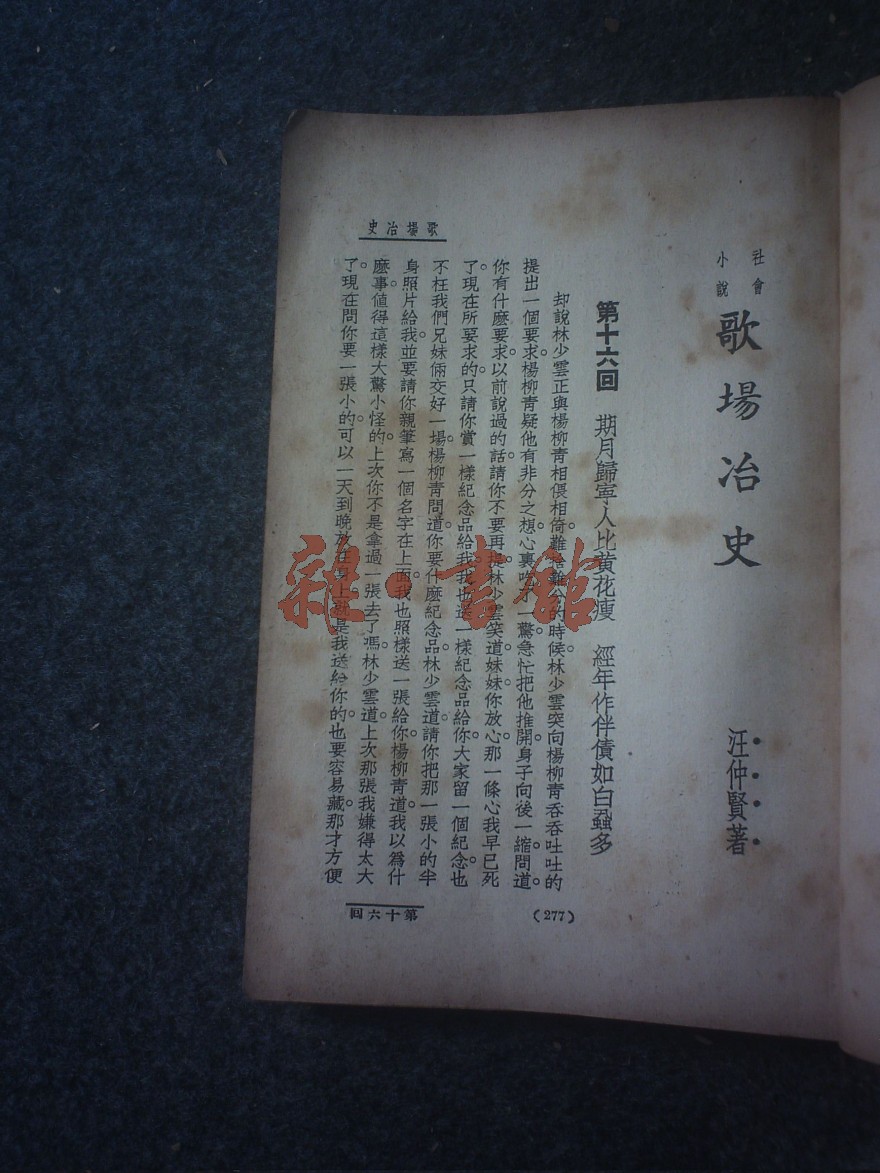 社會
小說
歌場冶史
汪仲賢著
第十六回 期月歸寧人比黃花瘦 經年作伴債如白蝨多
却說林少雲正與楊柳青相偎相倚。難捨難分的時候。林少雲突向楊柳青吞吞吐吐的
提出一個要求。楊柳青疑他有非分之想。心裏吃了一驚。急忙把他推開。身子向後一縮。問道。
你有什麽要求。以前說過的話。請你不要再提。林少雲笑道。妹妹。你放心。那一條心我早已死
了。現在所要求的。只請你賞一樣紀念品給我。我也送一樣紀念品給你。大家留一個紀念。也
不枉我們兄妹倆交好一場。楊柳青問道。你要什麽紀念品。林少雲道。請你把那一張小的半
身照片給我。並要請你親筆寫一個名字在上面。我也照樣送一張給你。楊柳青道。我以爲什
麽事。値得這樣大驚小怪的。上次你不是拿過一張去了嗎。林少雲道。上次那張我嫌得太大
了。現在問你要一張小的。可以一天到晚放在身上。就是我送給你的。也要容易藏。那才方便
歌場冶史
第十六回
(277)
雜·書館